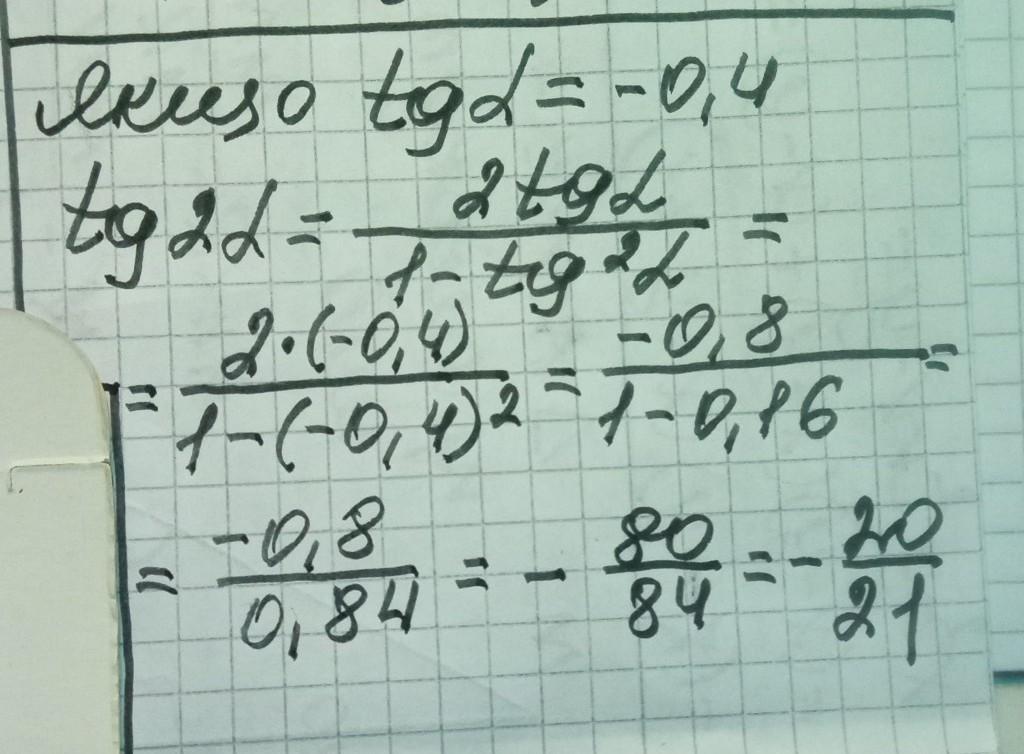 Якщо tgα = -0,4
tg2α = 2tgα / 1 - tg²α =
= 2·(-0,4) / 1-(-0,4)² = -0,8 / 1-0,16 =
= -0,8 / 0,84 = - 80 / 84 = - 20 / 21